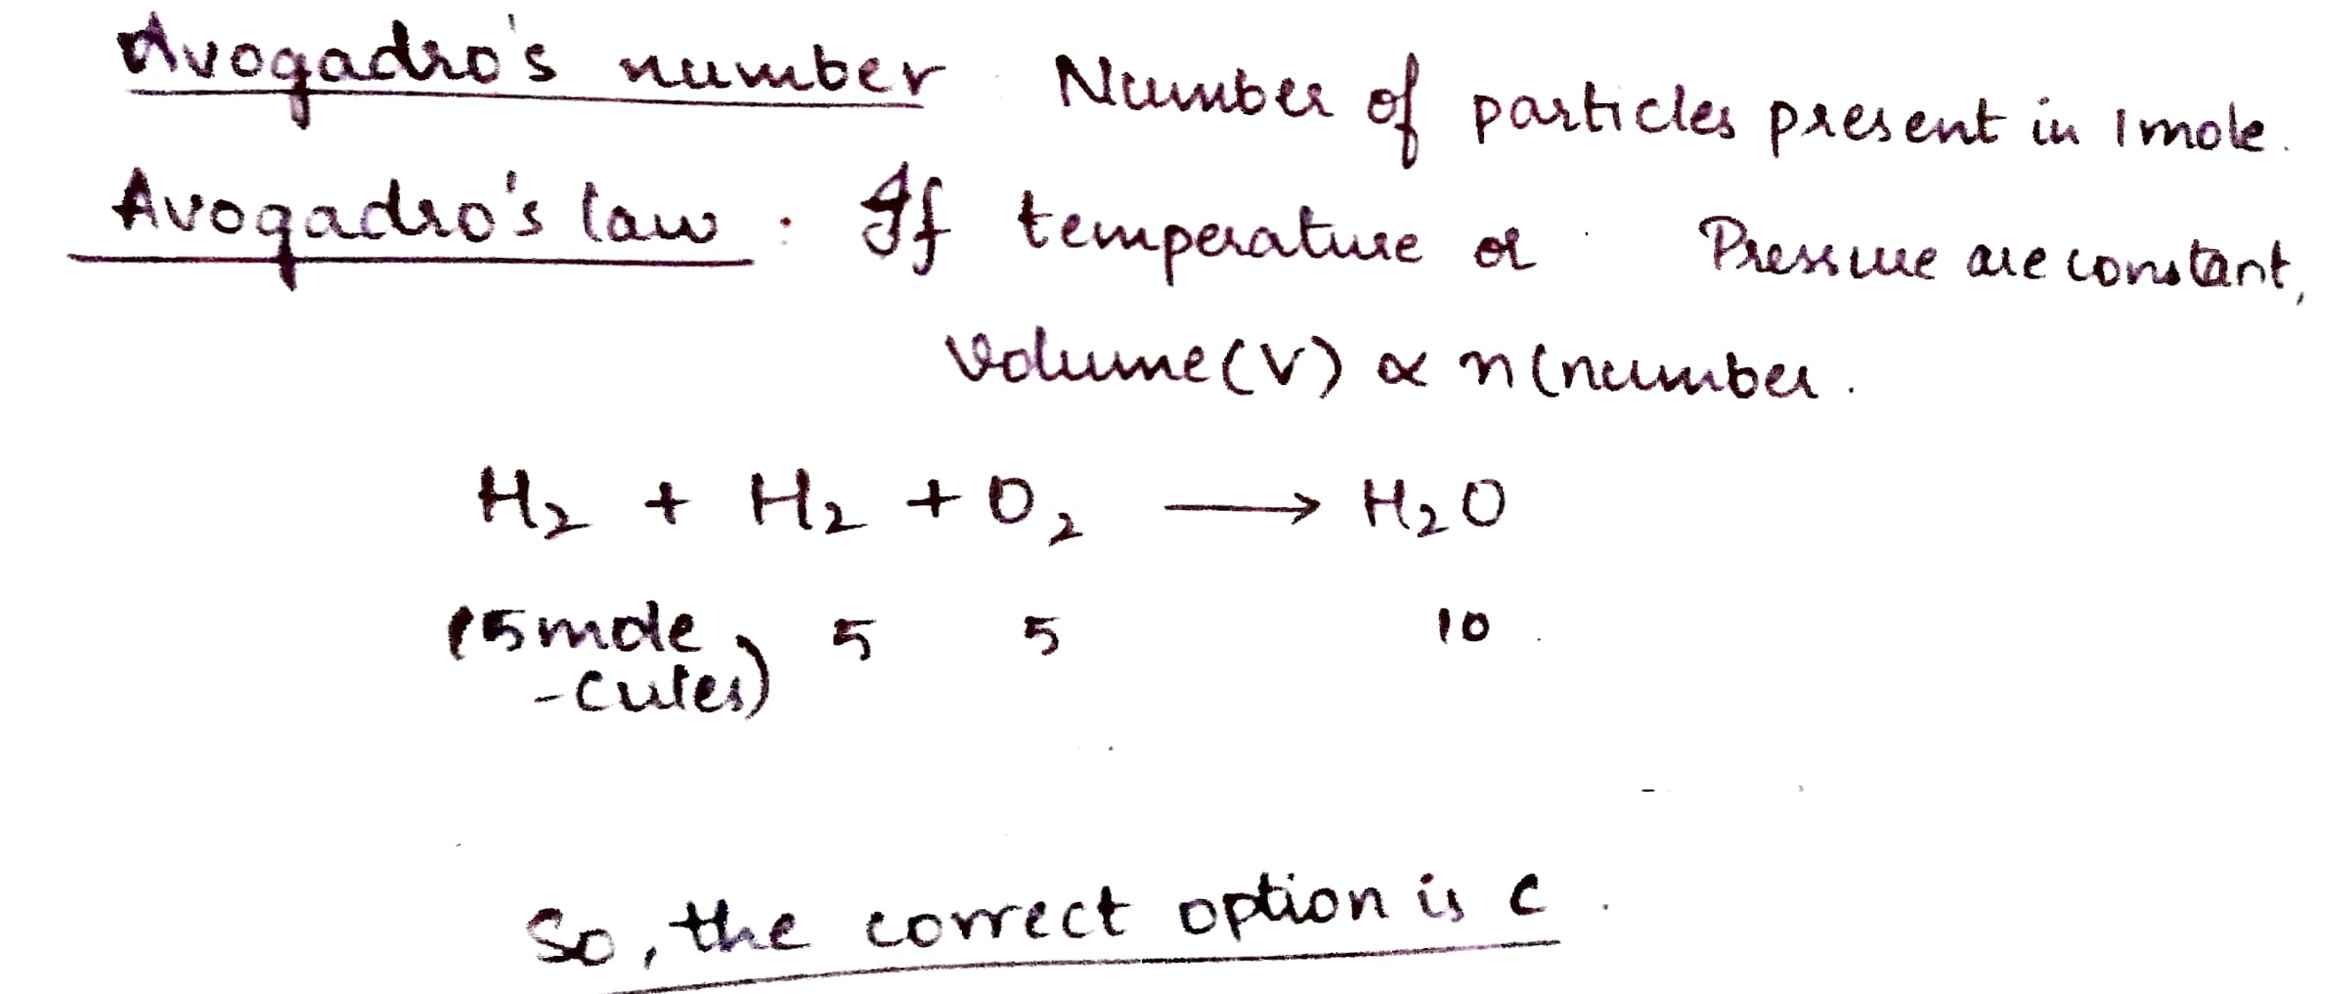 Avogadro's number Number of particles present in 1 mole.
Avogadro's law : If temperature or Pressure are constant,
Volume (V) ∝ n (number.
H₂ + H₂ + O₂ ⟶ H₂O
(5 mole 5 5 10
-cules)
So, the correct option is C.